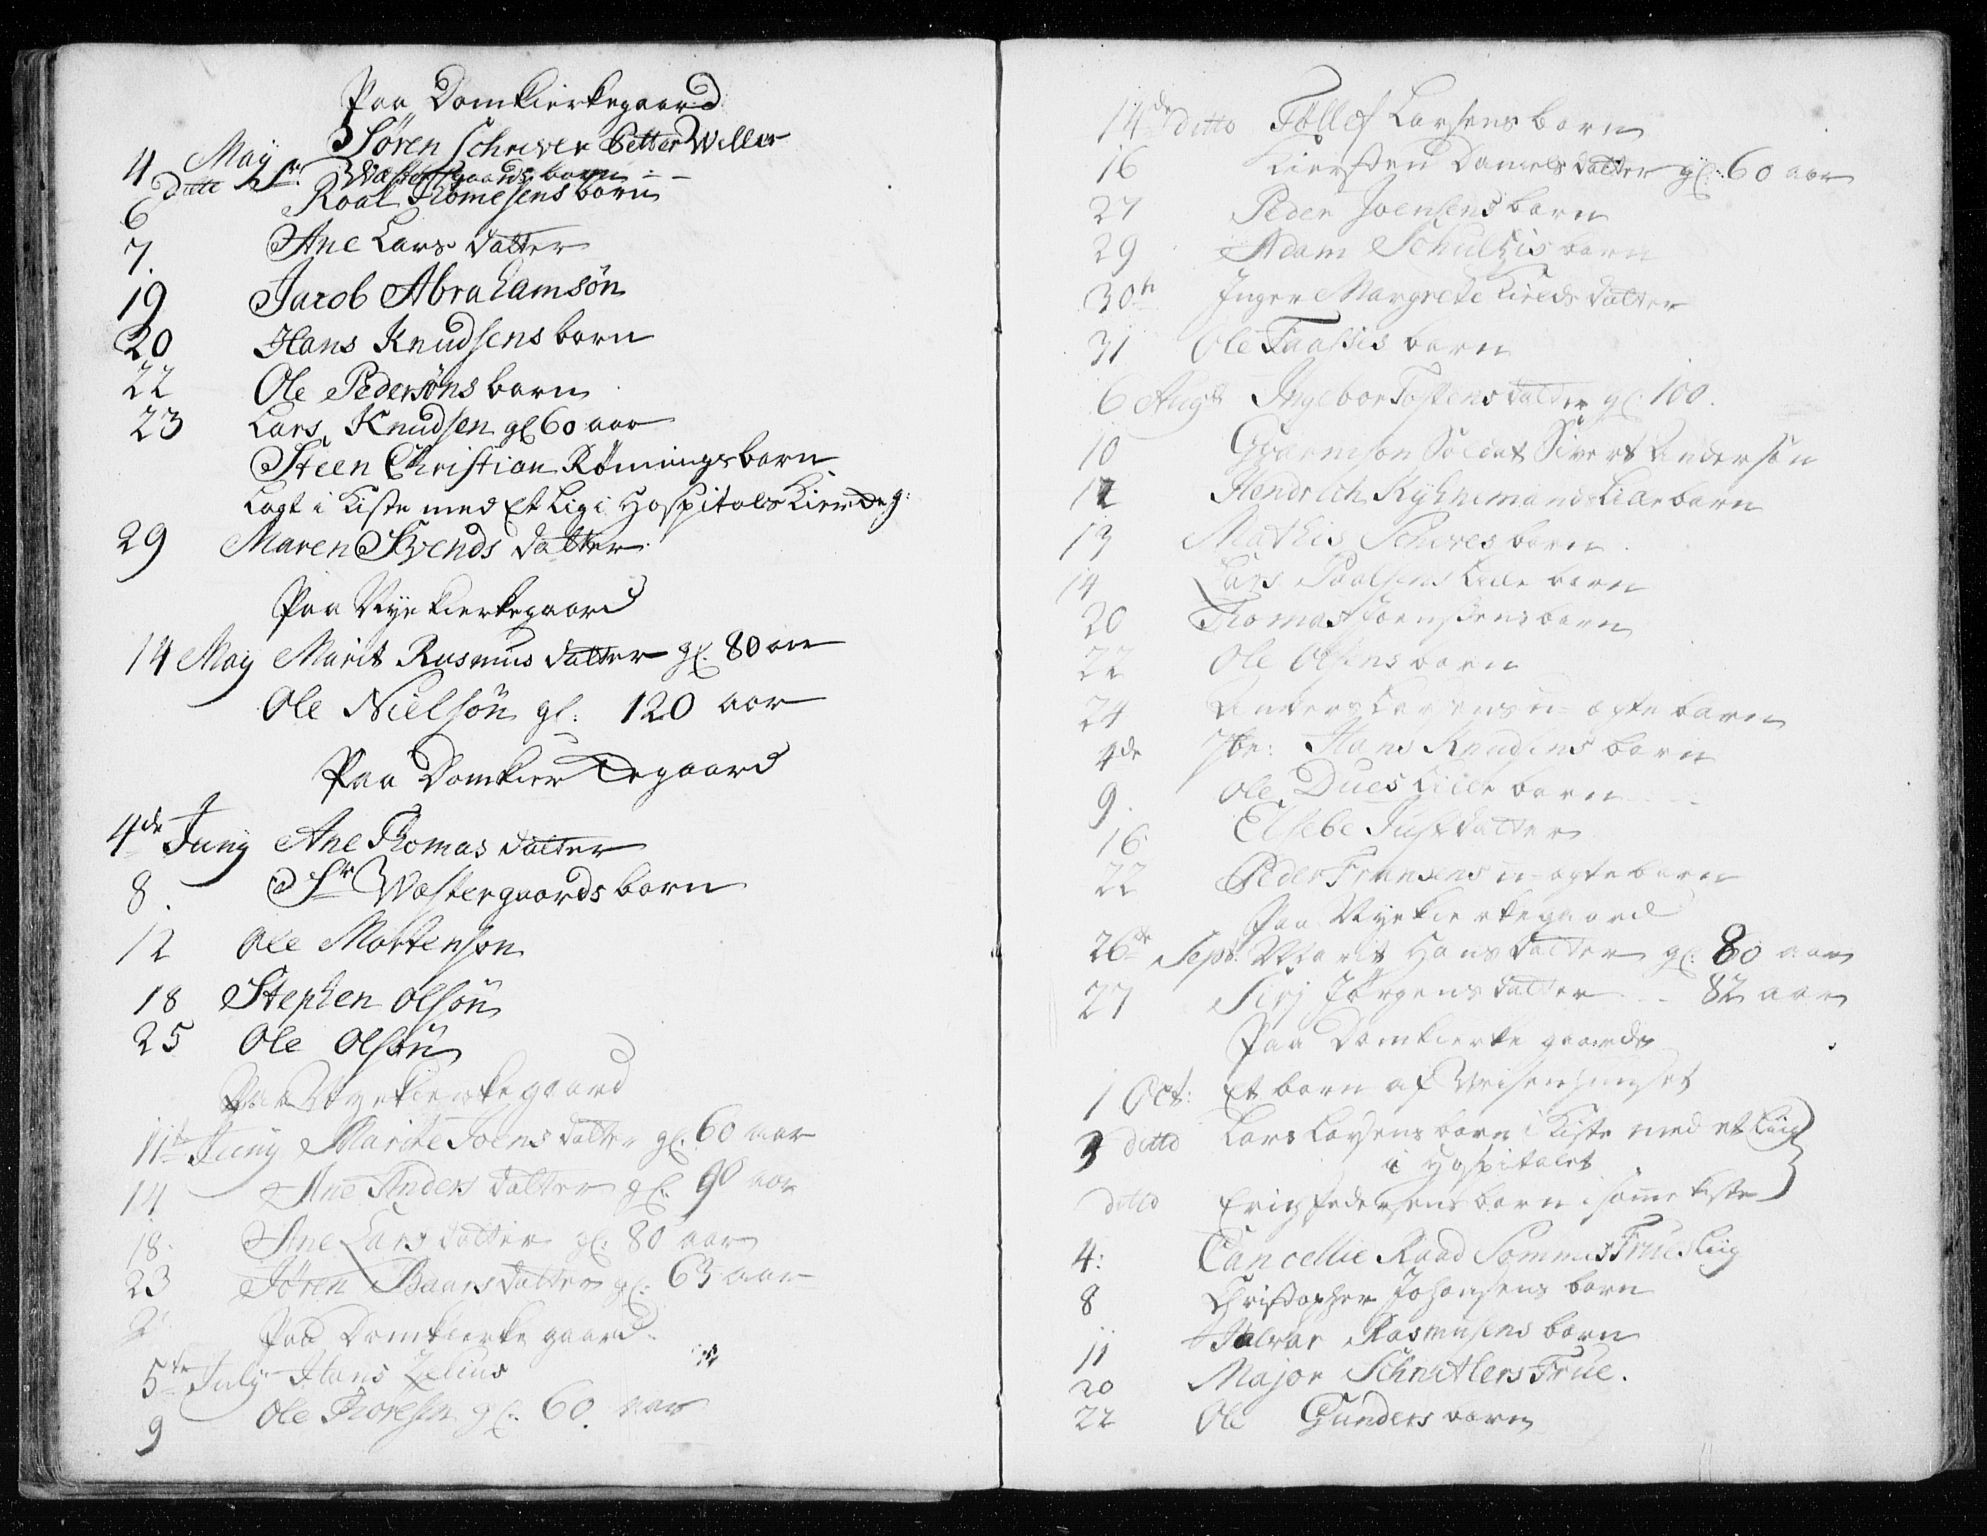 Paa Domkierkegaard
4 May Sören Schriver Petter Willer
ditto Sr. Westergaards barn
6 Roal Thomesens barn
7. Ane Lars datter
19 Jacob Abrahamsön
20 Hans Knudsens barn
22 Ole Pedersöns barn
23 Lars Knudsen gl 60 aar
Steen Christian Rømings barn
Lagt i Kiste med Et Lig i Hospitals Kierkeg:
29 Maren Svends datter
Paa Nye Kierkegaard
14 May Marit Rasmus datter gl. 80 aar
Ole Nielsön gl. 120 aar
Paa Domkierkegaard
4de Juny Ane Thomas datter
8. Sr Wastergaards barn
12 Ole Mortenson
18 Stephen Olsön
25 Ole Olsön
Paa Nyekierkegaard
11te Juny Marite Joens datter gl. 60 aar
14 Ane Anders datter gl. 90 aar
18. Ane Lars datter gl. 80 aar
23 Sören Baars datter gl. 63 aar
Paa Domkierkegaard
5te July Hans Zelius
9 Ole Thoresen gl. 60. aar
14de ditto Tollef Larsens barn
16 Kiersten Daniels datter gl. 60 aar
27 Peder Joensens barn
29 Adam Schultzis barn
30te Inger Margrete Kields datter
31 Ole Faassis barn
6 Augst Ingebor Tostens datter gl. 100.
10 Gvarnison Soldat Sivert Anderson
12 Hendrich Kyhnemands barn
13 Mathis Schives barn
14 Lars Paalsens lille barn
20 Thomas Joensens barn
22 Ole Olsens barn
24 Anders Larsens u-ægte barn
4de 7br: Hans Knudsens barn
9. Ole Dues lille barn
16 Elsebe Just datter
22 Peder Fransens u-ægte barn
Paa Nye Kierkegaard
26de Sept. Marit Hans datter gl. 80 aar
27 Sirj Jörgens datter - - 82 aar
Paa Domkierke gaarde
1 Oct: Et barn af Weisenhuuset
3 ditto Lars Larsens barn i Kiste med et Liig
i Hospitalet
ditto Erich Pedersens barn i same kiste
4: Cancellie Raad Sommers Frues Liig
8 Christopher Johansens barn
11 Halvar Rasmusens barn
20 Major Schnitlers Frue.
22 Ole Gunders barn